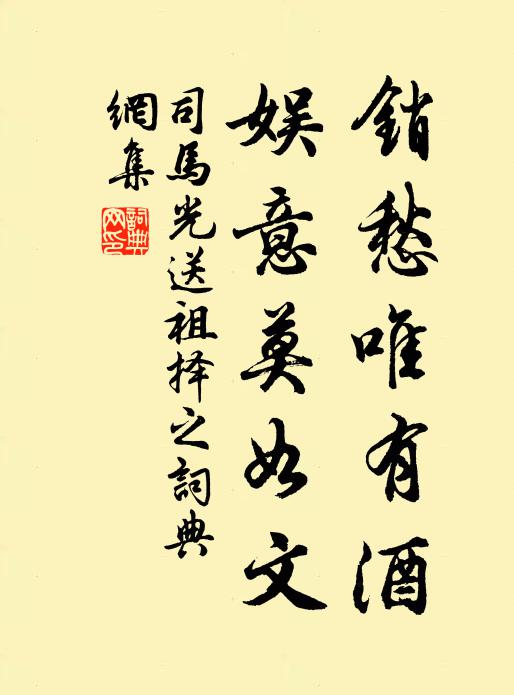 銷愁唯有酒
娱意莫如文
司馬光送祖择之詞典
網集
詞典
网印